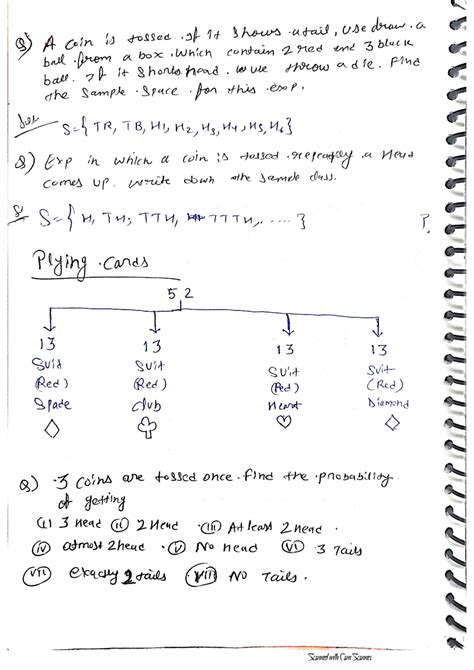 Q) A coin is tossed. If it shows a tail, we draw a
ball from a box which contain 2 red end 3 black
ball. If it shorts head. we throw a die. Find
the sample space for this exp.
S={TR, TB, H1, H2, H3, H4, H5, H6}
Q) Exp in which a coin is tossed repeatly a Head
comes up. write down the sample class.
S={H, TH; TTH, TTTH, ....}
P.
Plying cards
52
13 13 13 13
Suid Suit Suit Suit
(Red) (Red) (Red) (Red)
Spade Club Heart Diamond
Q) 3 coins are tossed once find the probability
of getting
(i) 3 Head (ii) 2 Head (iii) At least 2 head.
(iv) atmost 2 head (v) No head (VI) 3 Tails
(VII) exactly 2 tails (VIII) NO Tails.
Scanned with Cam Scanner